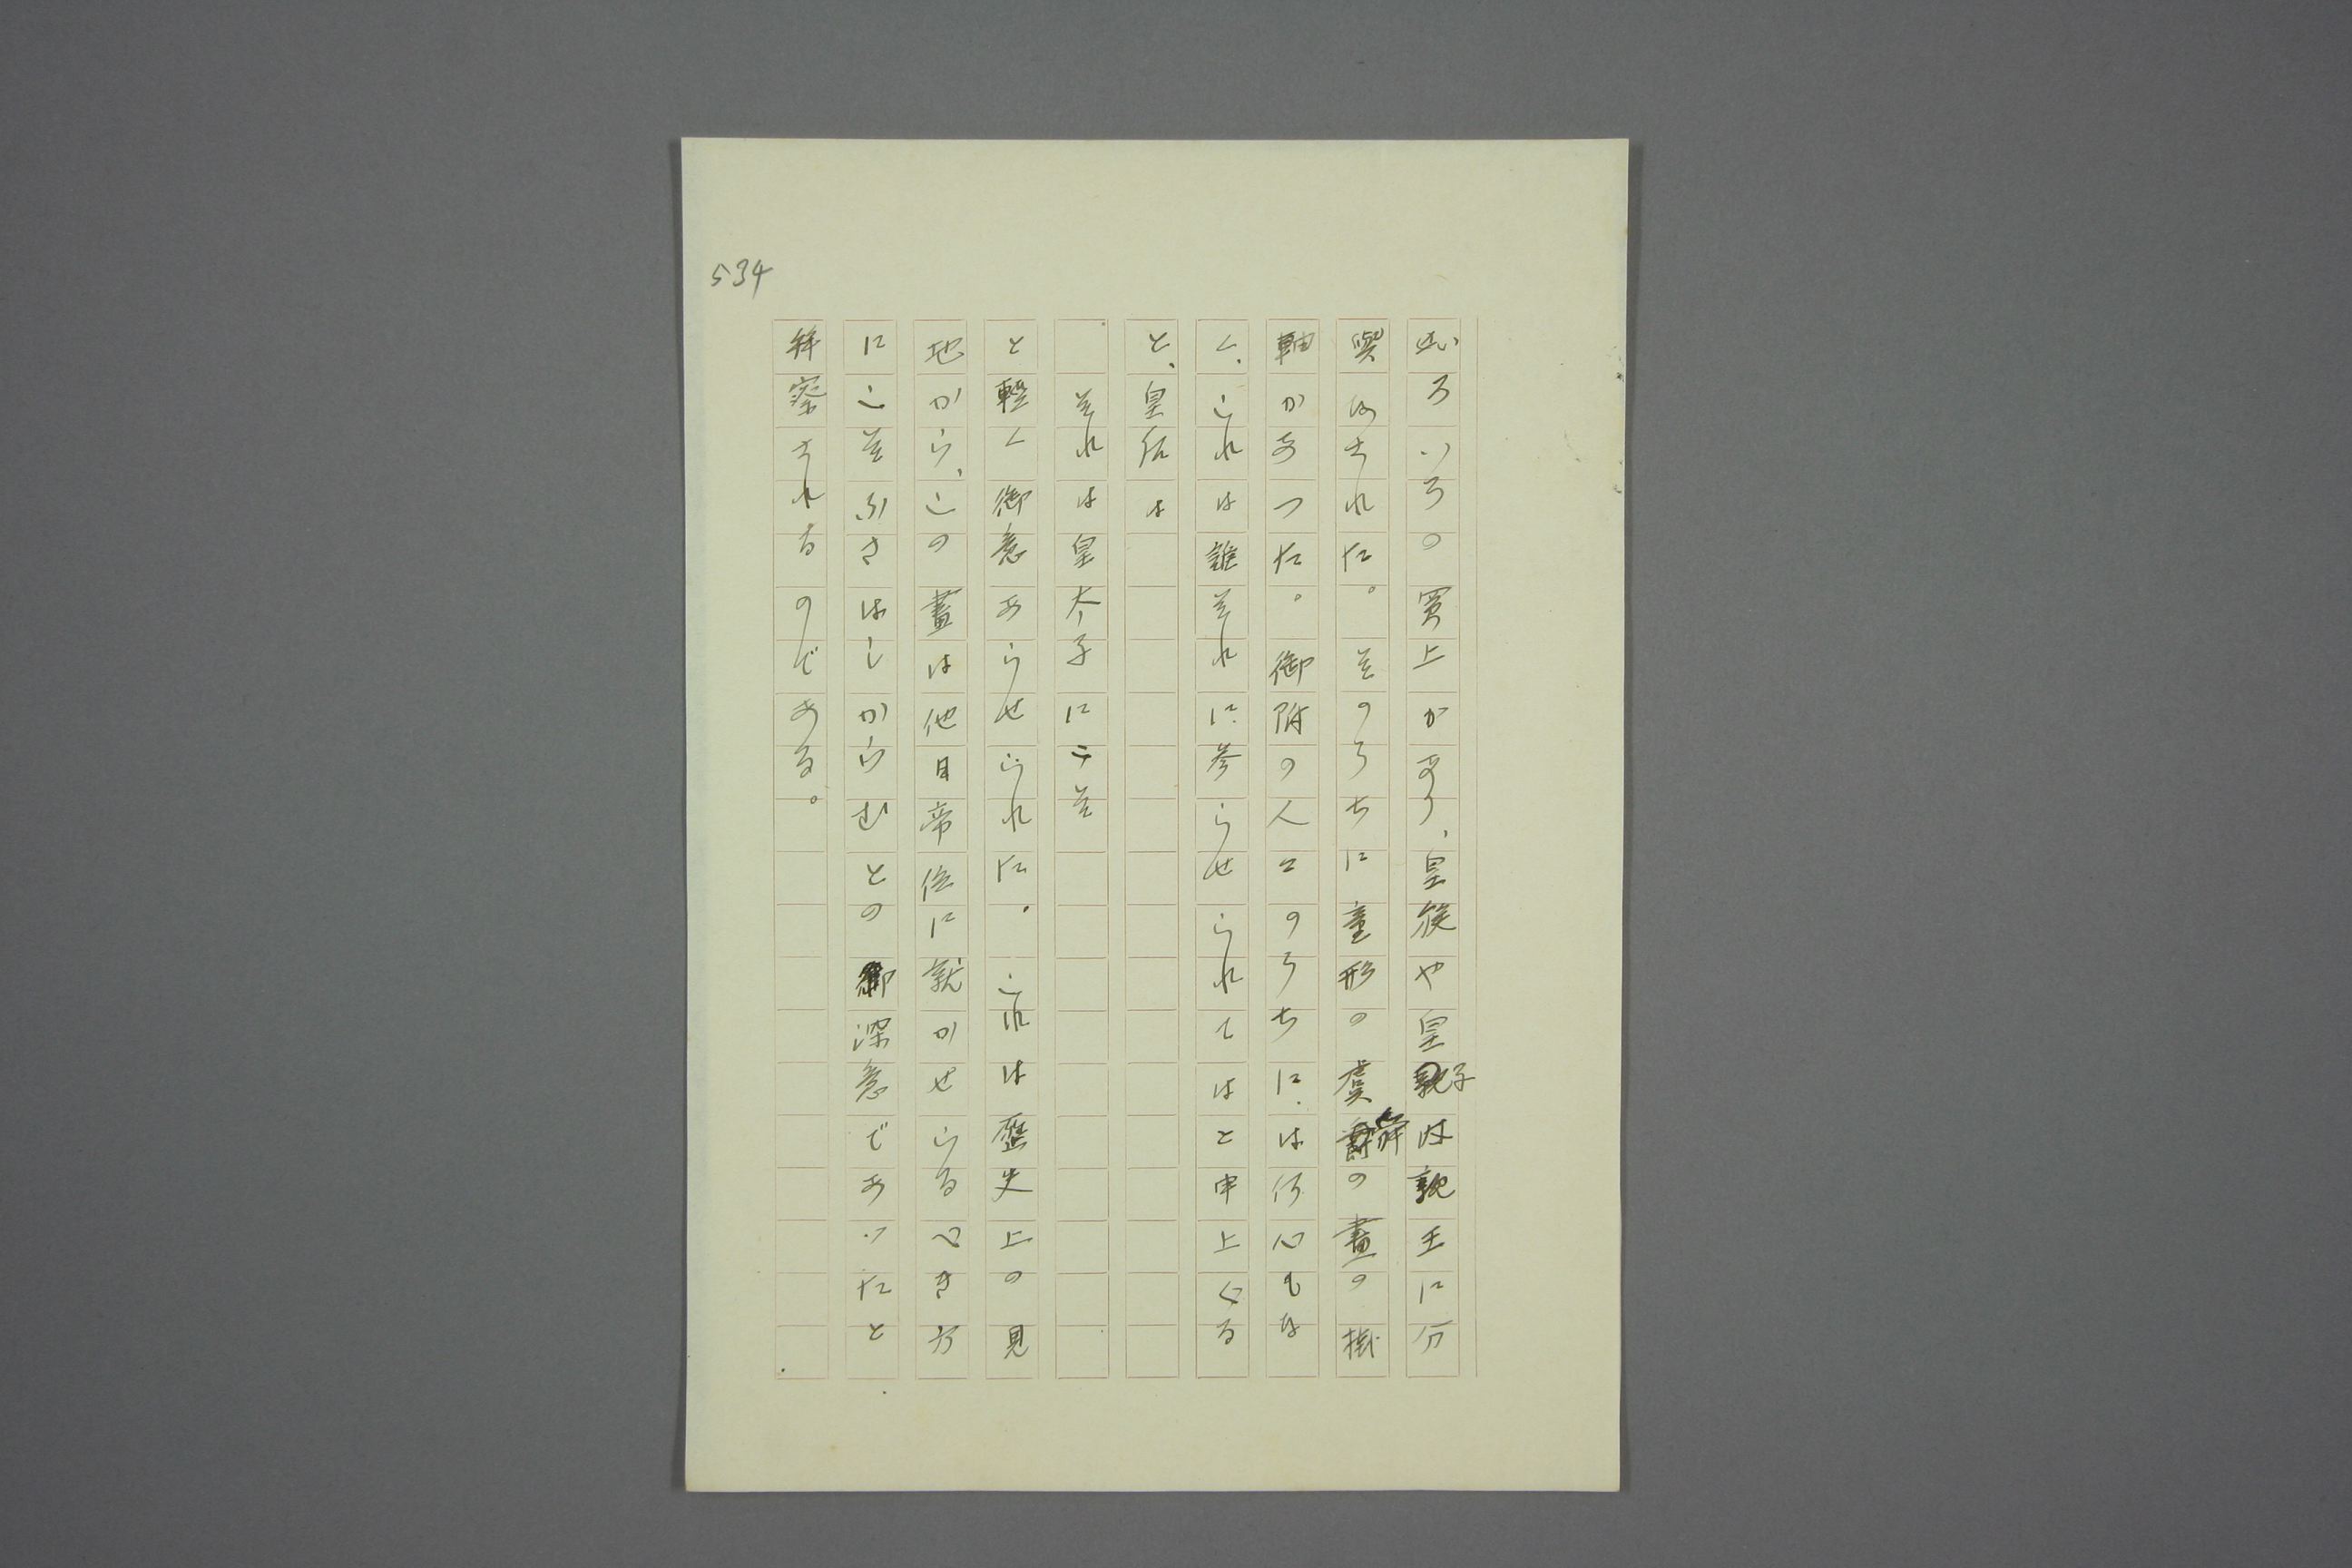 534
ゐろいろの買上があり、皇族や皇子は親王に分
與なされた。そのうちに童形の虞舜の畫の掛
軸があつた。御附の人々のうちには何心もな
く、これは誰それに参らせられてはと申上ぐる
と、皇后は
それは皇太子にこそ
と軽く御意あらせられた。これは歴史上の見
地から、この畫は他日帝位に就かせらるべき方
にこそふさはしからむとの御深意であつたと
拝察されるのである。